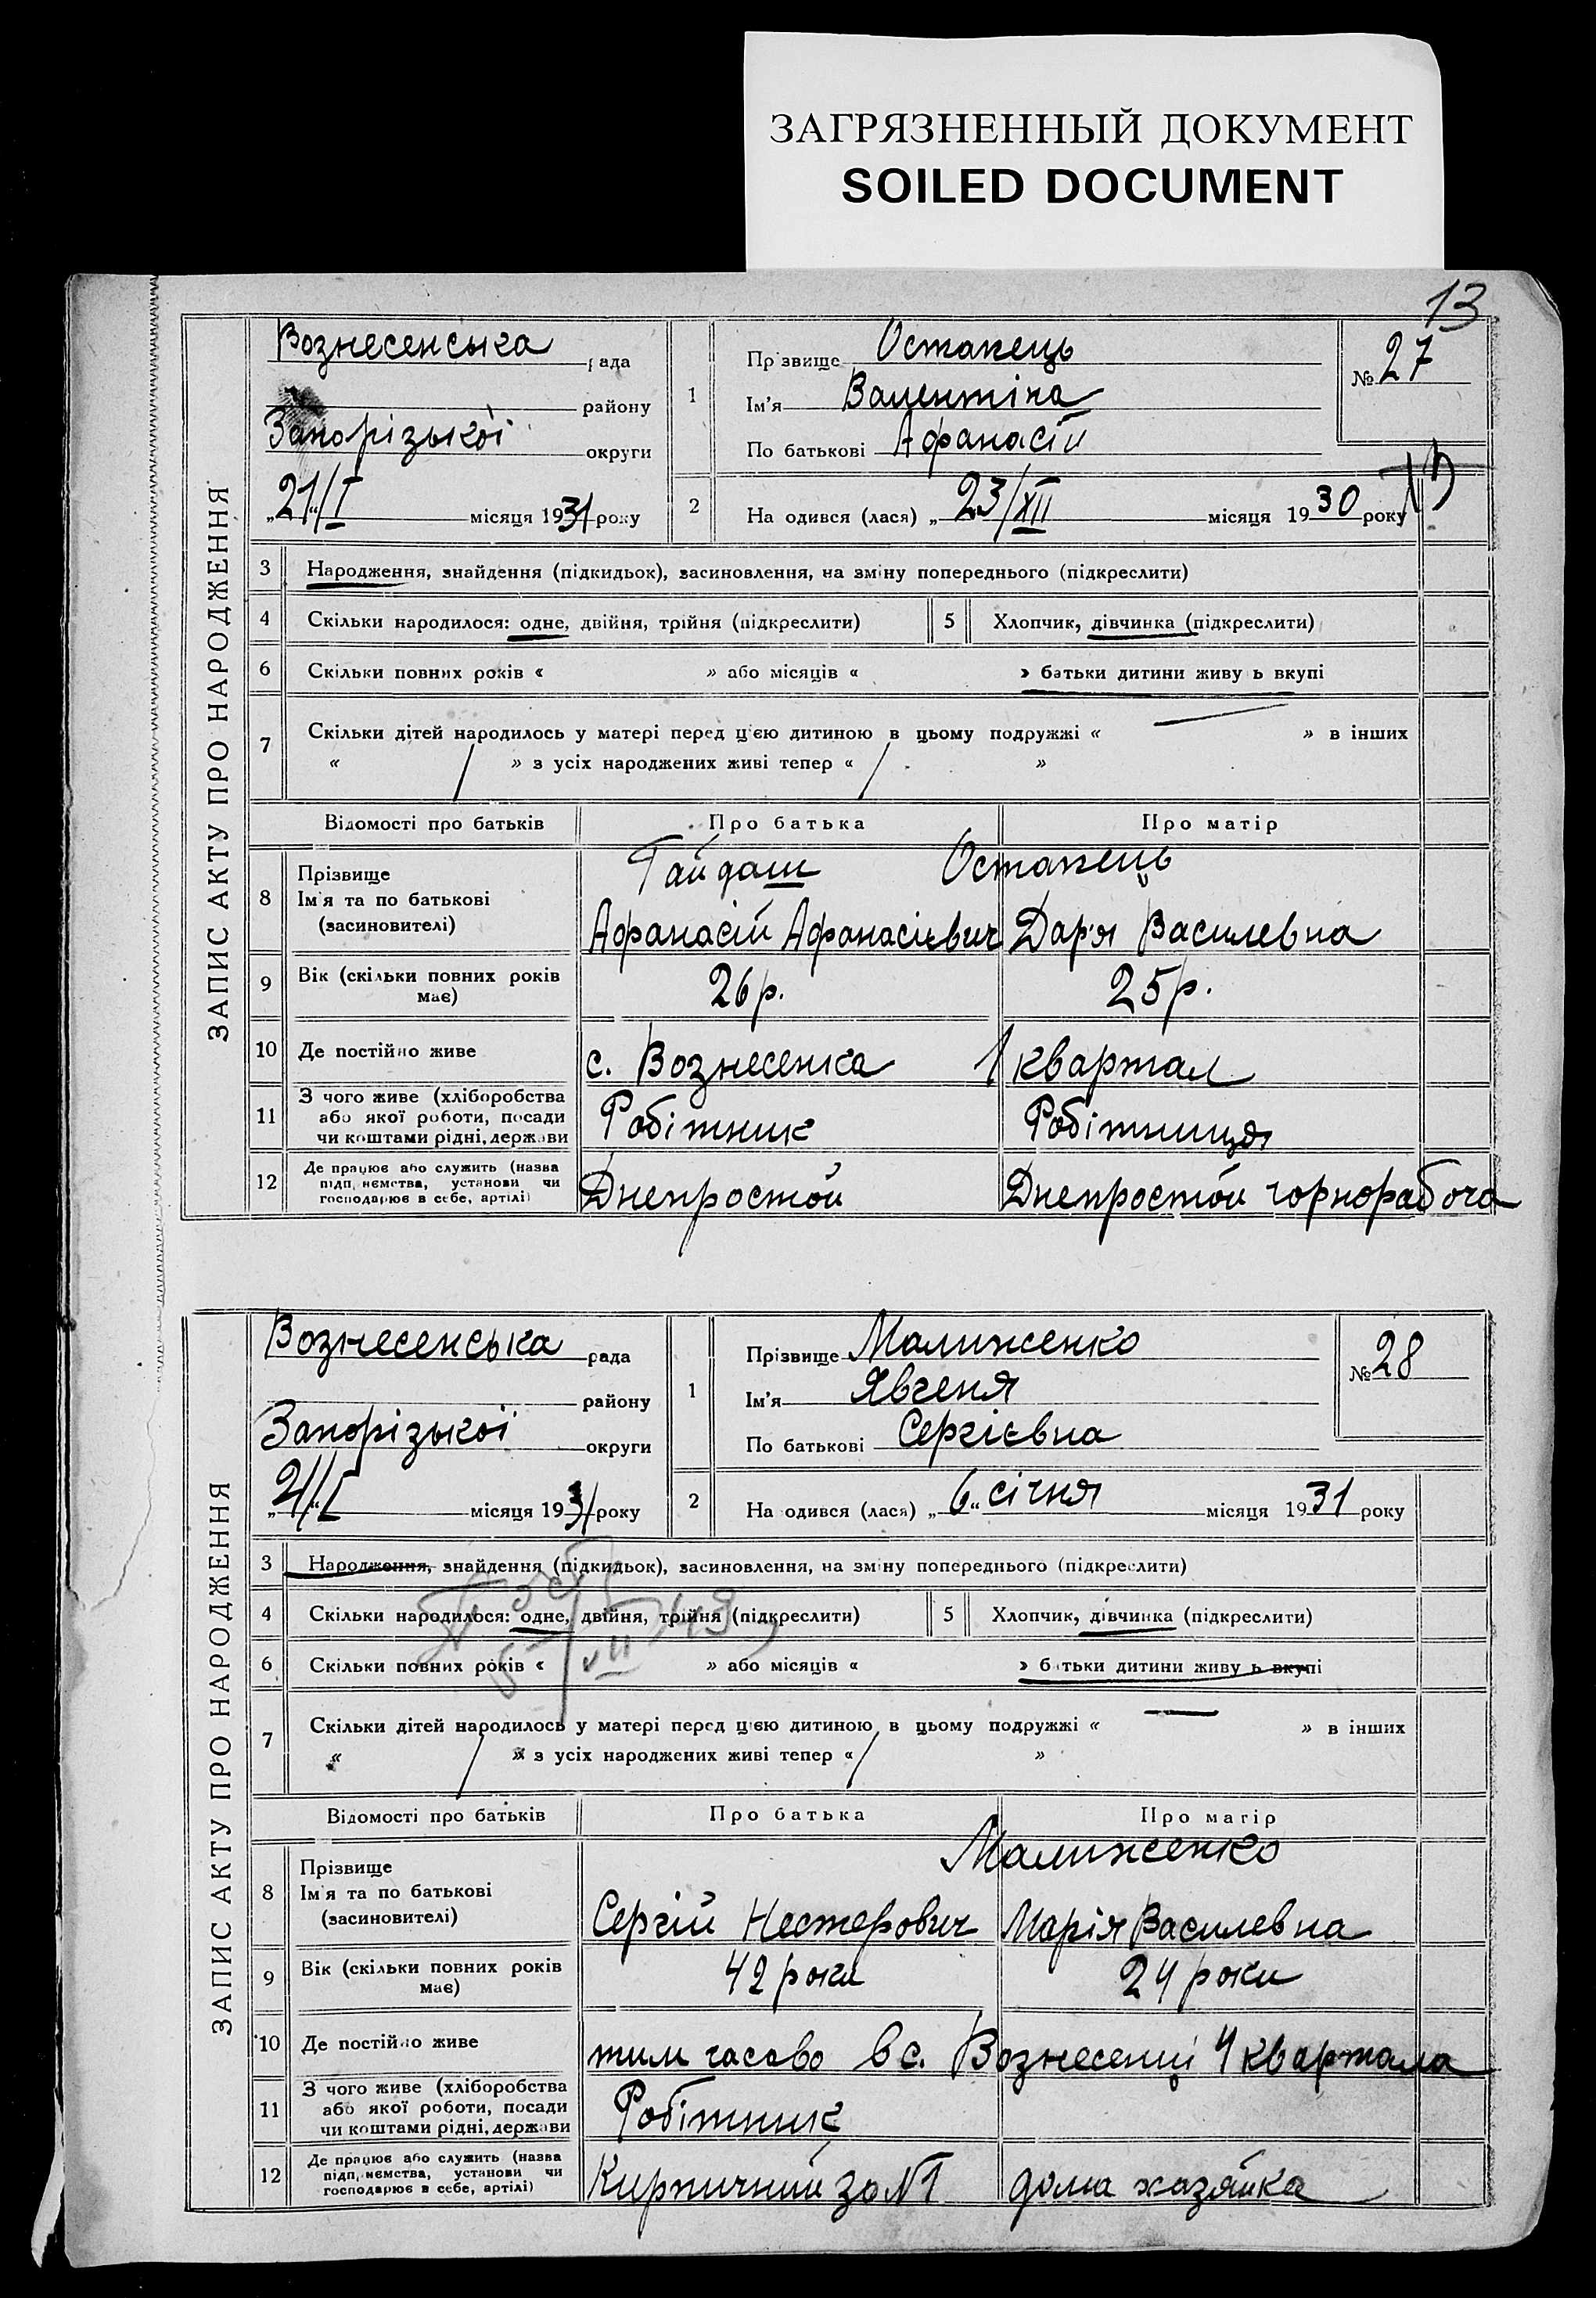 ЗАГРЯЗНЕННЫЙ ДОКУМЕНТ
SOILED DOCUMENT
13
ЗАПИС АКТУ ПРО НАРОДЖЕННЯ
Вознесенська рада
району
Запорізької округи
„21"/I місяця 1931 року
1
Прізвище Остапець
Ім'я Валентіна
По батькові Афанасій
№ 27
2
На одився (лася) „23/XII місяця 1930 року
3 Народження, знайдення (підкидьок), засиновлення, на зміну попереднього (підкреслити)
4 Скільки народилося: одне, двійня, трійня (підкреслити) 5 Хлопчик, дівчинка (підкреслити)
6 Скільки повних років « » або місяців « » батьки дитини живу ь вкупі
7 Скільки дітей народилось у матері перед цією дитиною в цьому подружжі « » в інших
« » з усіх народжених живі тепер « »
Відомості про батьків Про батька Про матір
8 Прізвище
Ім'я та по батькові
(засиновителі)
Гайдаш Остапець
Афанасій Афанасієвич Дар'я Василевна
9 Вік (скільки повних років має) 26 р. 25 р.
10 Де постійно живе с. Вознесенка 1 квартал
11 З чого живе (хліборобства
або якої роботи, посади
чи коштами рідні, держави
Робітник Робітниця
12 Де працює або служить (назва
підп, немства, установи чи
господарює в себе, артілі)
Днепрострой Днепрострой чорнорабоча
ЗАПИС АКТУ ПРО НАРОДЖЕННЯ
Вознесенська рада
району
Запорізької округи
„21"/I місяця 1931 року
1
Прізвище Малиженко
Ім'я Явгеня
По батькові Сергієвна
№ 28
2
На одився (лася) „6" січня місяця 1931 року
3 Народження, знайдення (підкидьок), засиновлення, на зміну попереднього (підкреслити)
4 Скільки народилося: одне, двійня, трійня (підкреслити) 5 Хлопчик, дівчинка (підкреслити)
6 Скільки повних років « » або місяців « » батьки дитини живу ь вкупі
7 Скільки дітей народилось у матері перед цією дитиною в цьому подружжі « » в інших
« » з усіх народжених живі тепер « »
Відомості про батьків Про батька Про матір
8 Прізвище
Ім'я та по батькові
(засиновителі)
Малиженко
Сергій Нестерович Марія Василевна
9 Вік (скільки повних років має) 42 роки 24 роки
10 Де постійно живе тимчасово в с. Вознесенці 4 квартала
11 З чого живе (хліборобства
або якої роботи, посади
чи коштами рідні, держави
Робітник
12 Де працює або служить (назва
підп, немства, установи чи
господарює в себе, артілі)
Кирпичний з №1 дома хазяйка